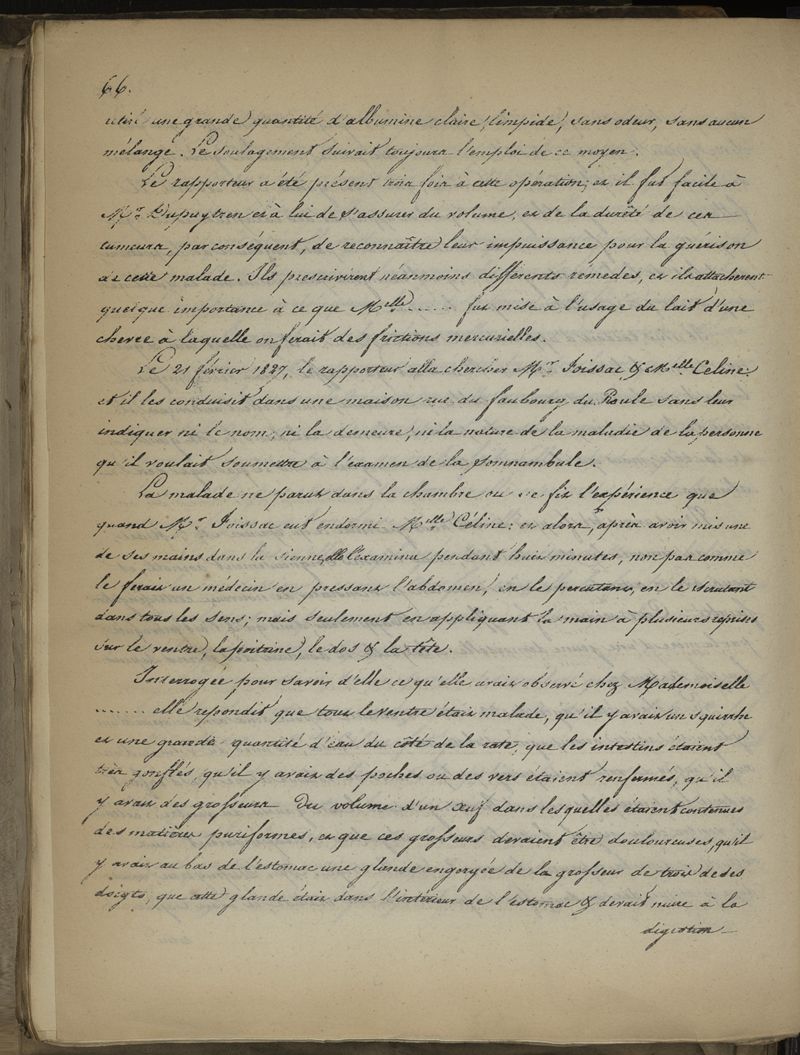 66.
retiré une grande quantité d'albumine claire, limpide, sans odeur, sans aucun
mélange. Le soulagement suivait toujours l'emploi de ce moyen.
Le rapporteur a été présent trois fois à cette opération; et il fut facile à
Mr. Dupuytren et à lui de s'assurer du volume, et de la dureté de ces
tumeurs, par conséquent, de reconnaître leur impuissance pour la guérison
de cette malade. Ils prescrivirent néanmoins différents remedes, et ils attacherent
quelque importance à ce que Melle ....... fut mise à l'usage du lait d'une
chevre à laquelle on ferait des frictions mercurielles.
Le 21 février 1827, le rapporteur alla chercher Mr. Foissac & Melle Celine
et il les conduisit dans une maison rue du faubourg du Roule sans leur
indiquer ni le nom, ni la demeure, ni la nature de la maladie de la personne
qu'il voulait soumettre à l'examen de la somnambule.
La malade ne parut dans la chambre ou se fit l'expérience que
quand Mr. Foissac eut endormi Melle Céline: et alors, après avoir mis une
de ses mains dans la sienne, elle l'examina pendant huit minutes, non pas comme
le ferait un médecin en pressant l'abdomen, en le percutant, en le scrutant
dans tous les sens; mais seulement en appliquant la main à plusieurs reprises
sur le ventre, la poitrine, le dos & la tête.
Interrogée pour savoir d'elle ce qu'elle avait observé chez Mademoiselle
....... elle repondit que tout le ventre était malade, qu'il y avait un squirrhe
et une grande quantité d'eau du côté de la rate, que les intestins étaient
très gonflés, qu'il y avait des poches ou des vers étaient renfermés, qu'il
y avait des grosseurs du volume d'un œuf dans lesquelles étaient contenues
des matières puriformes, et que ces grosseurs devaient être douloureuses, qu'il
y avait au bas de l'estomac une glande engorgée de la grosseur de trois de ses
doigts, que cette glande était dans l'intérieur de l'estomac & devait nuire à la
digestion